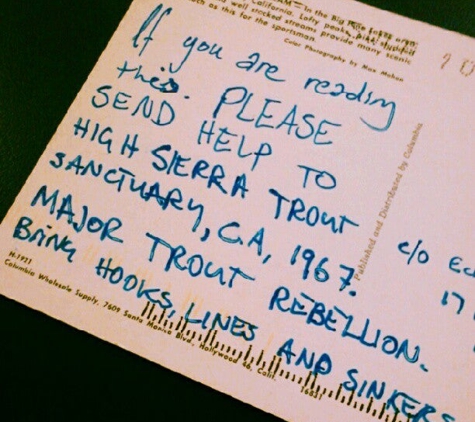 In the Big
California. Lofty peaks,
well stocked streams provide many scenic
as this for the sportsman.
Color Photography by Max Mahan
If you are reading
this. PLEASE
SEND HELP TO
HIGH SIERRA TROUT
SANCTUARY, CA, 1967.
MAJOR TROUT REBELLION.
BRING HOOKS, LINES AND SINKERS
Published and Distributed by Columbia
c/o
17
H-1921
Columbia Wholesale Supply, 7609 Santa Monica Blvd., Hollywood 46, Calif.
16821